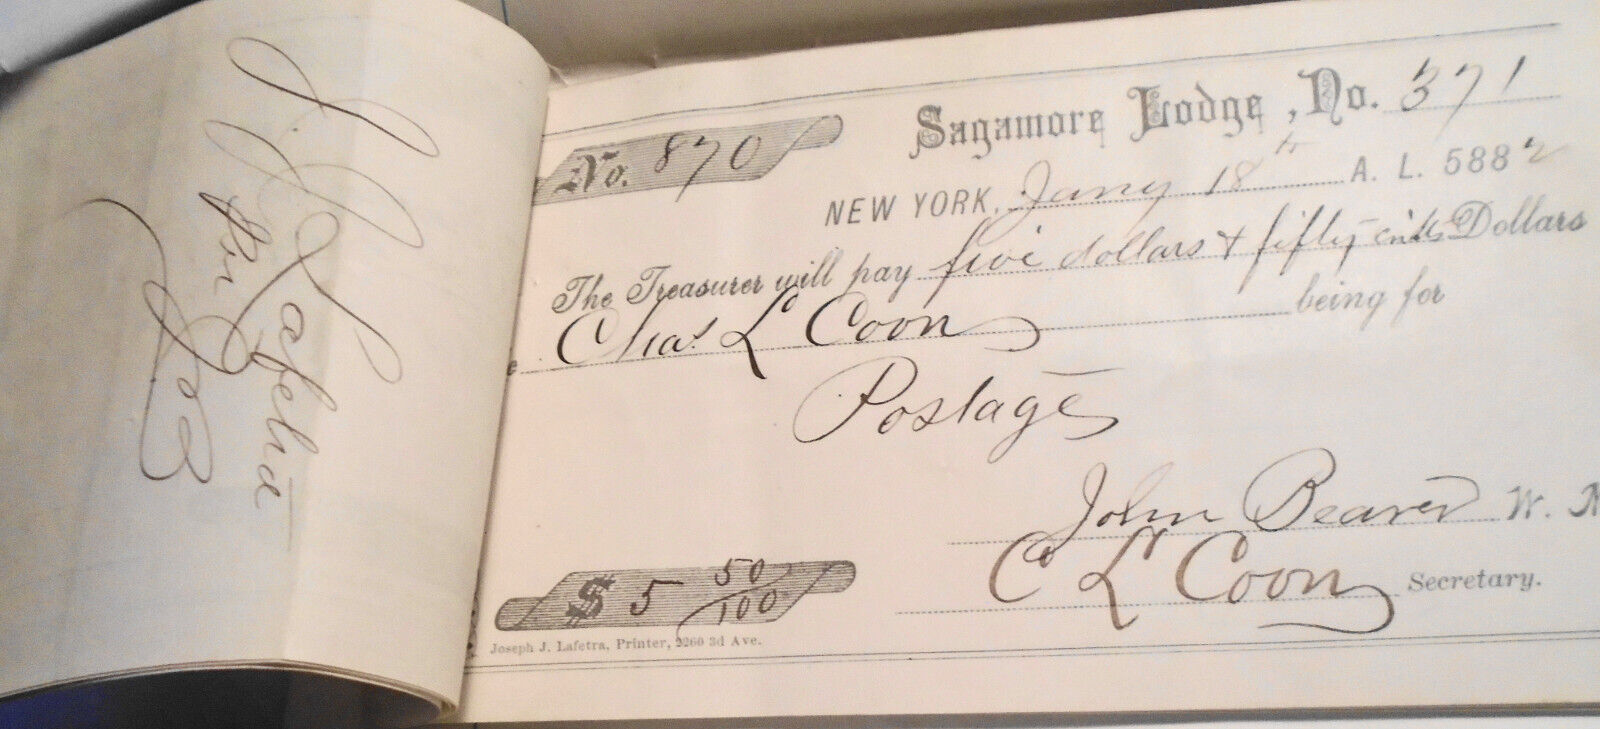 J. J. Lafetra
No. 870
Sagamore Lodge, No. 371
NEW YORK, Jany 18th A. L. 5882
The Treasurer will pay five dollars & fifty cents Dollars
Chas. L Coon being for
Postage
John Beaver W. M
C L Coon Secretary.
$ 5 50/100
Joseph J. Lafetra, Printer, 2260 3d Ave.